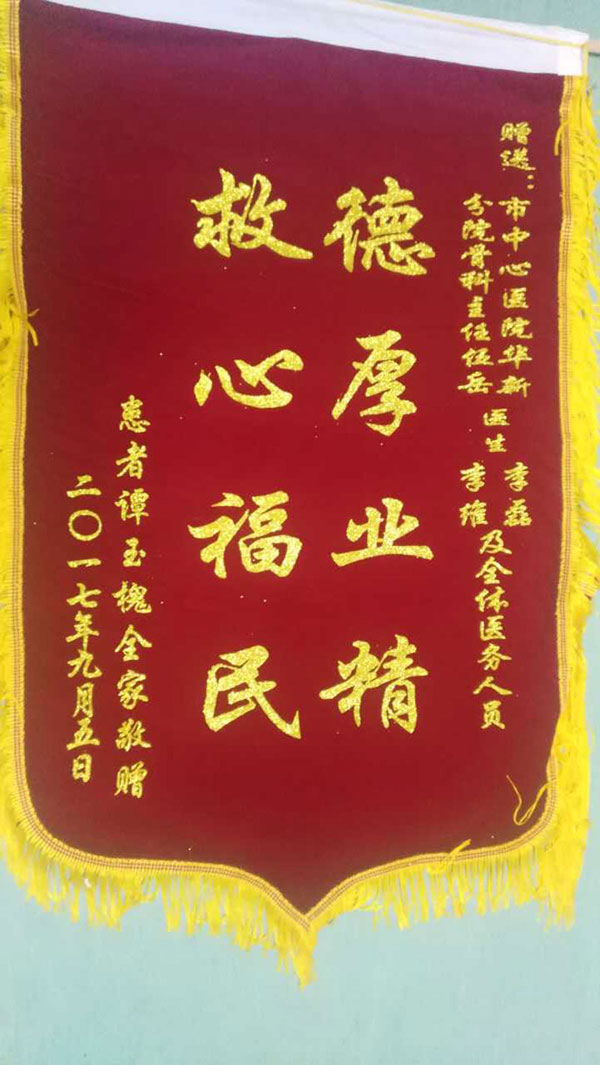 赠送：市中心医院华新
分院骨科主任伍岳
医生
李磊
李维
及全体医务人员
德厚业精
救心福民
患者谭玉槐全家敬赠
二〇一七年九月五日